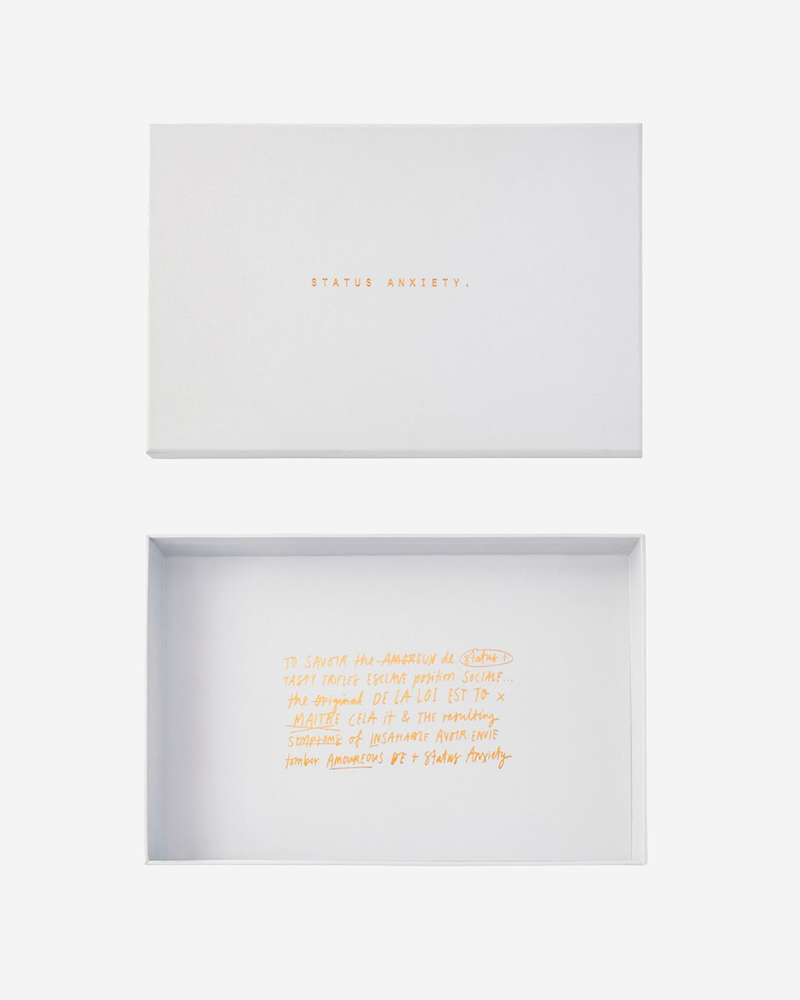 STATUS ANXIETY.
TO SAVOIR the AMOREUX de status +
TASTY TRIFLES ESCLAVE position SOCIALE...
the original DE LA LOI EST TO x
MAITRE CELA it & THE resulting
symptoms of INSATIABLE AVOIR ENVIE
tomber AMOUREOUS DE + Status Anxiety